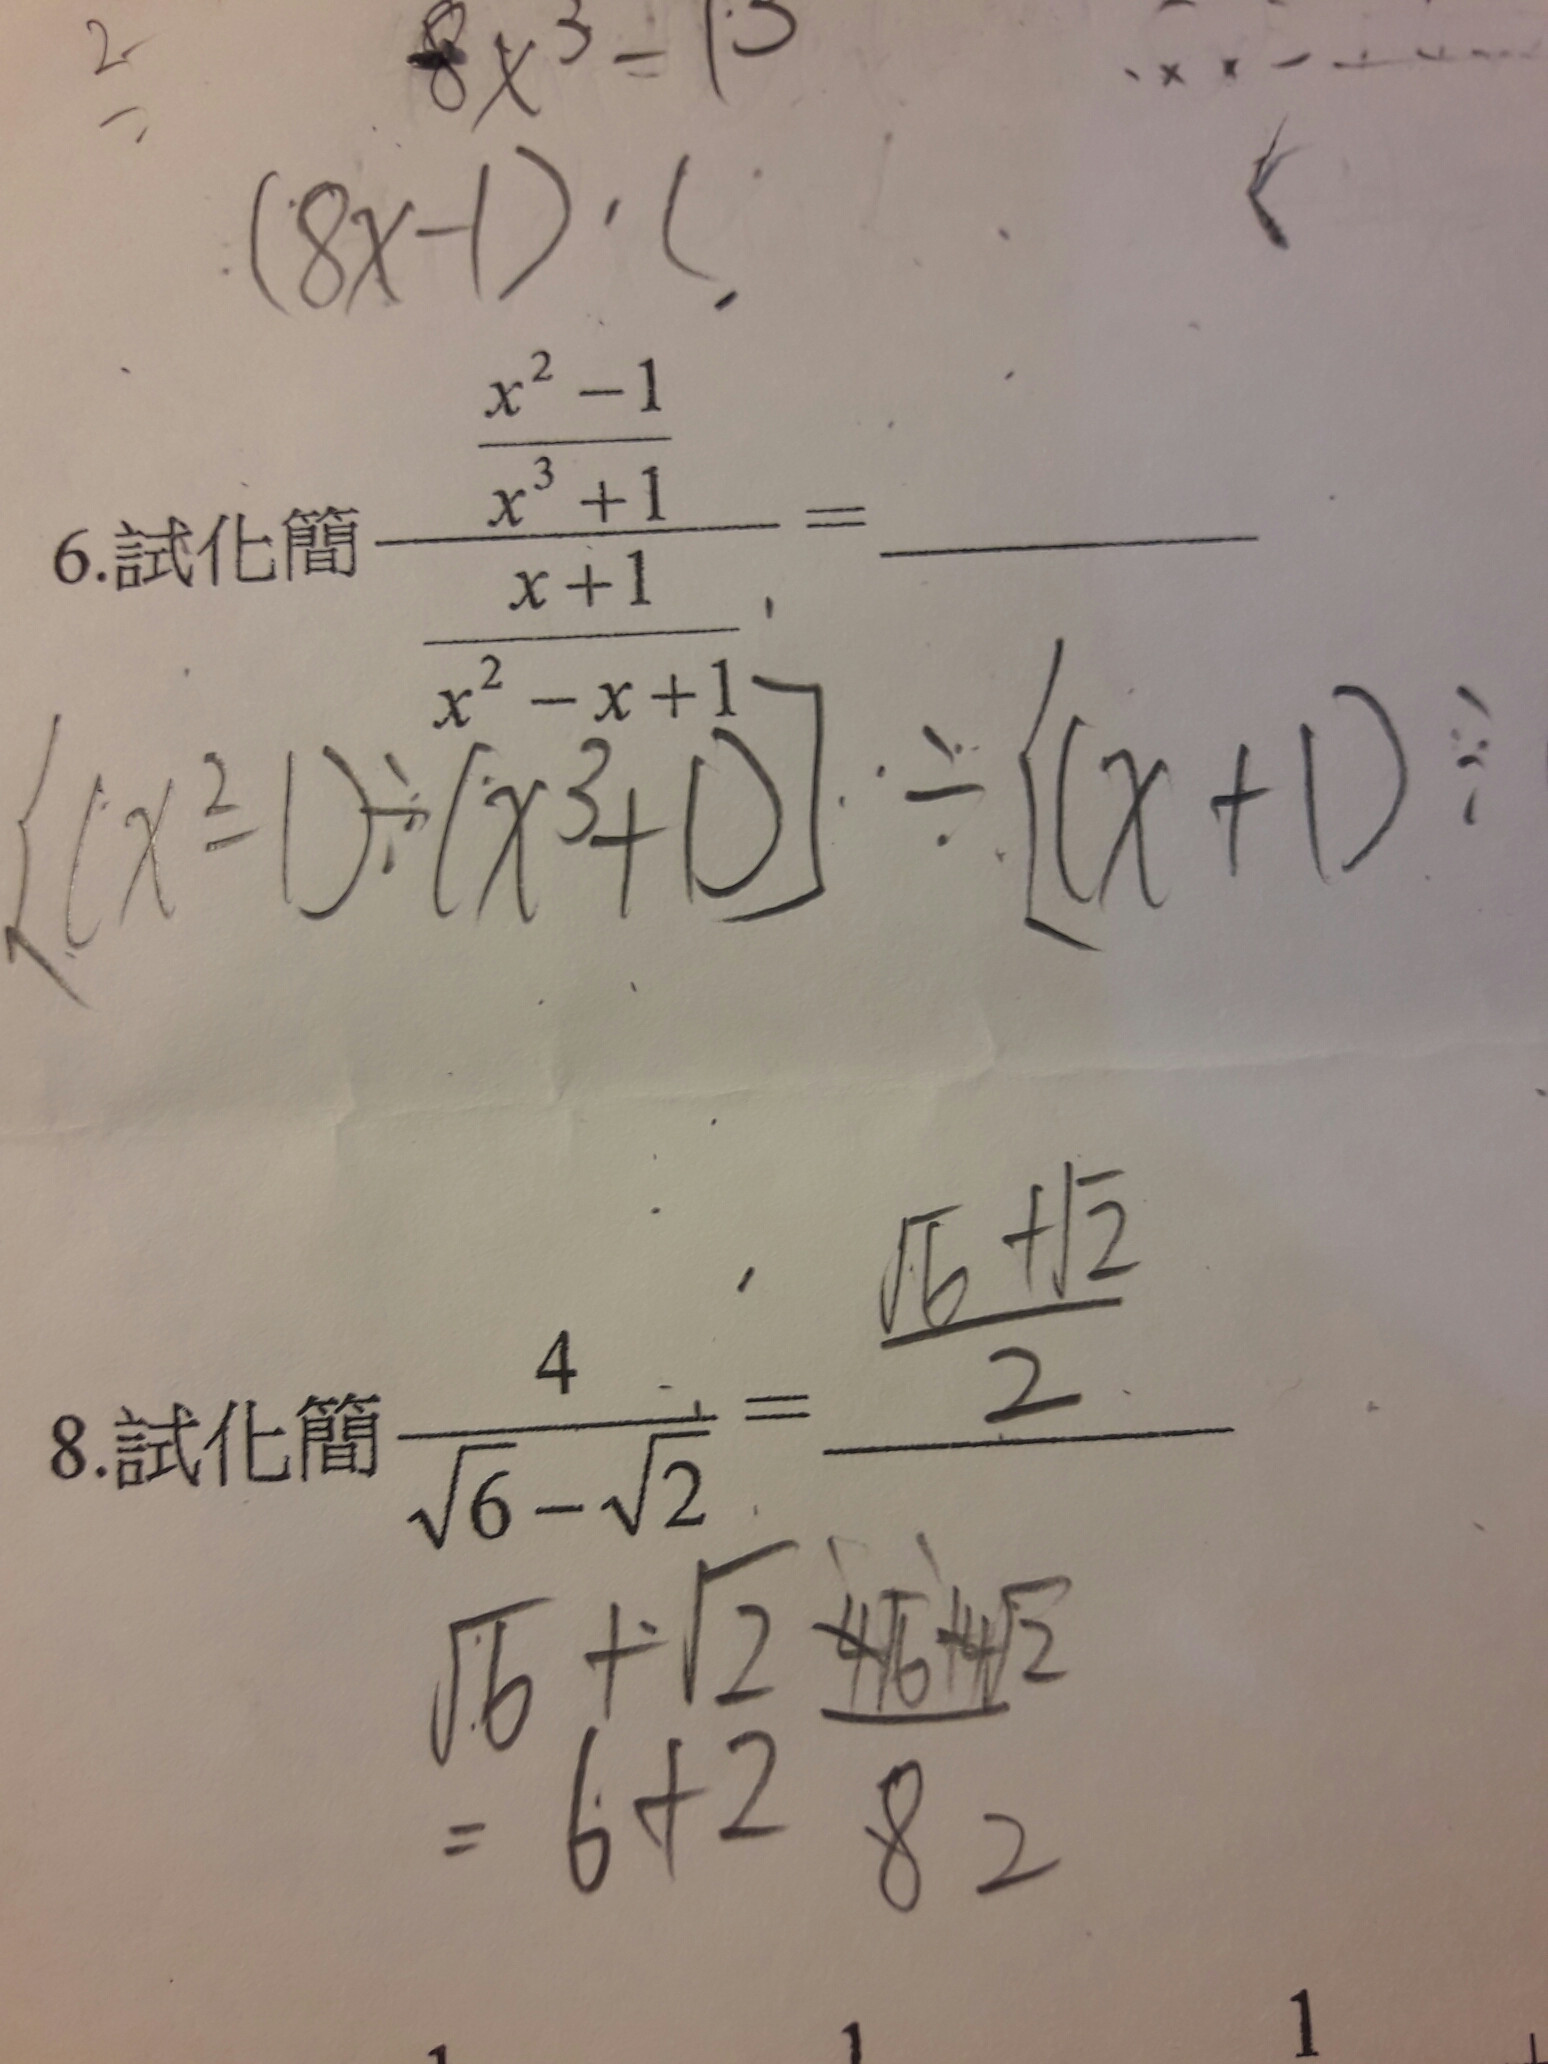 2
=
8x³ - 1³
(8x-1)·(
6.試化簡 \frac{\frac{x²-1}{x³+1}}{\frac{x+1}{x²-x+1}} = ____
[(x²-1)÷(x³+1)]÷[(x+1)÷
\frac{√6+√2}{2}
8.試化簡 \frac{4}{√6-√2} = ____
√6+√2 \frac{4√6+4√2}{8 2}
= 6+2
1 1 1